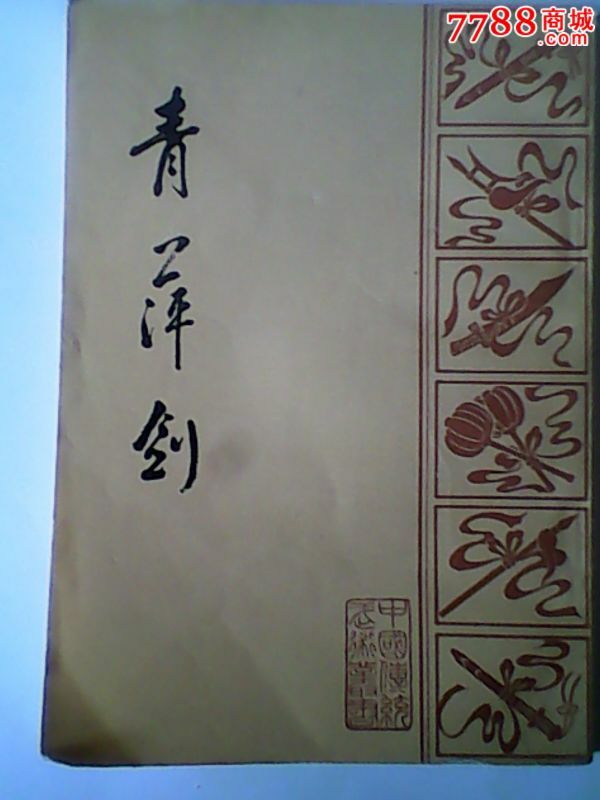 7788商城
青萍剑
中國傳統
武術叢書